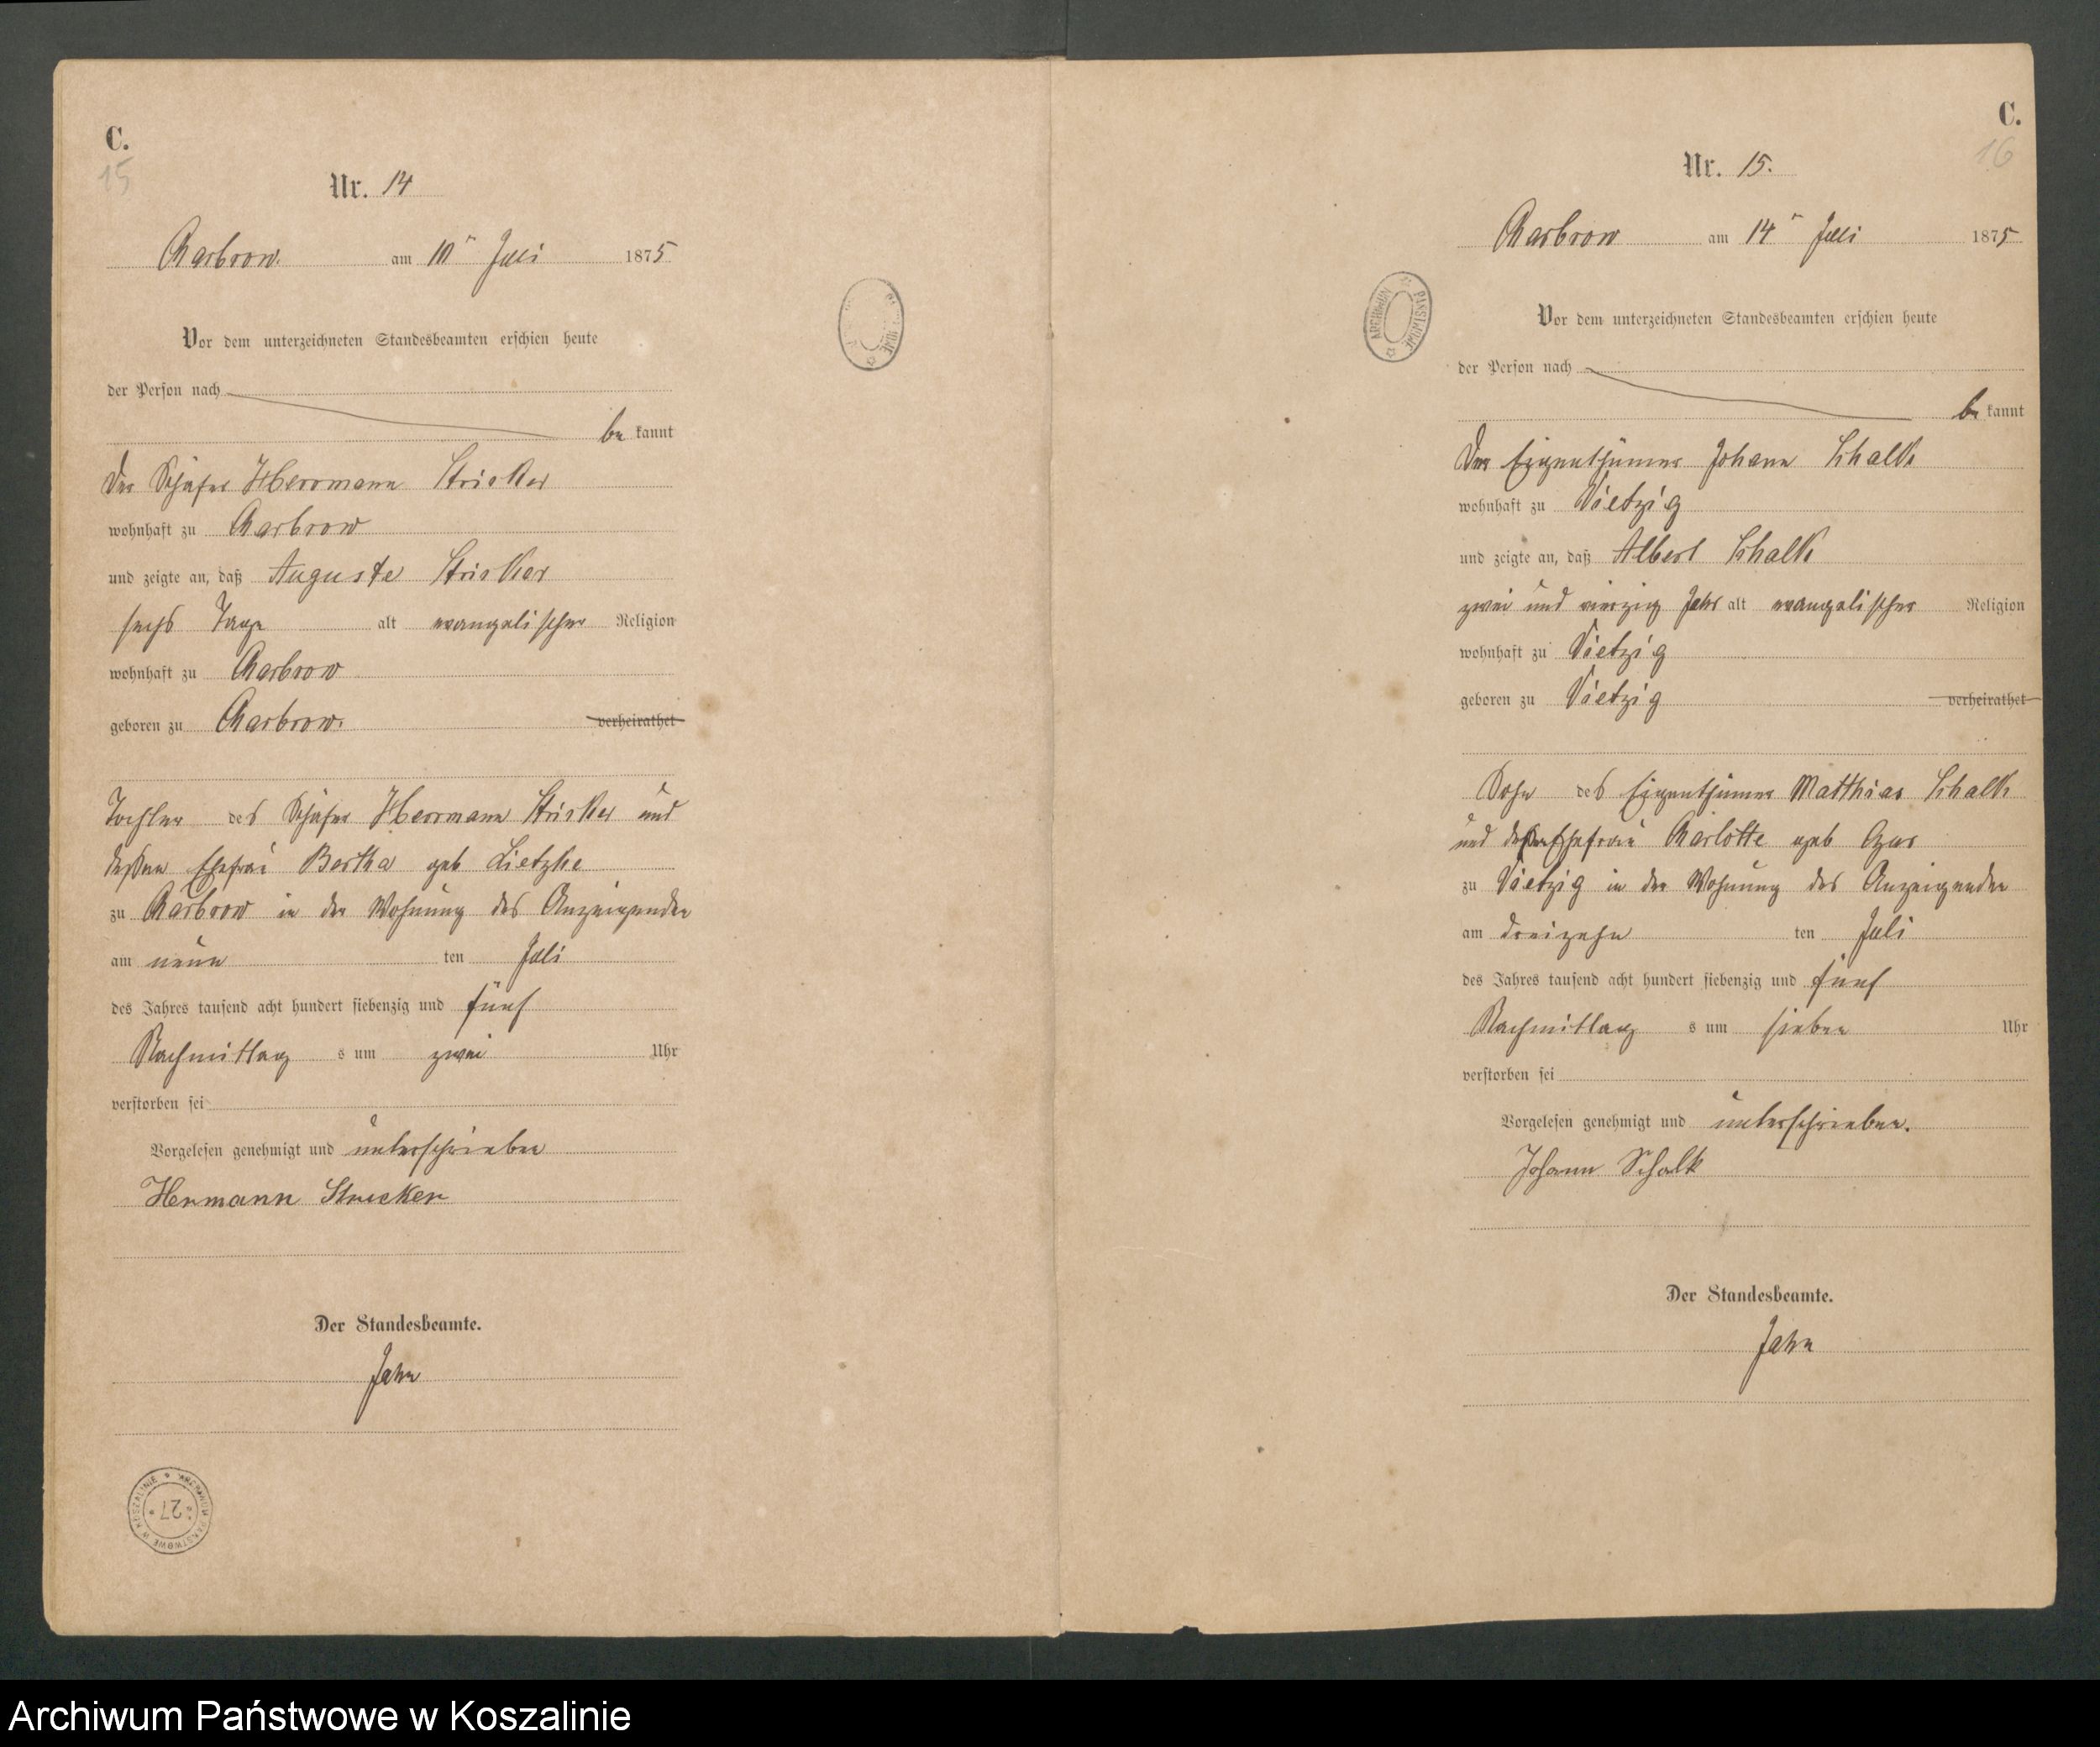 C.
15
Nr. 14
Charbrow. am 10ᵗ Juli 1875
Vor dem unterzeichneten Standesbeamten erschien heute
der Person nach
be kannt
Der Schäfer Herrmann Stricker
wohnhaft zu Charbrow
und zeigte an, daß Auguste Stricker
sechs Tage alt evangelischer Religion
wohnhaft zu Charbrow
geboren zu Charbrow. verheirathet
Tochter des Schäfer Herrmann Stricker und
dessen Ehefrau Bertha geb Lietzke
zu Charbrow in der Wohnung des Anzeigenden
am neun ten Juli
des Jahres tausend acht hundert siebenzig und fünf
Nachmittag s um zwei Uhr
verstorben sei
Vorgelesen genehmigt und unterschrieben
Hermann Strucker
Der Standesbeamte.
Jahn
ARCHIWUM PAŃSTWOWE W KOSZALINIE
27
C.
16
Nr. 15.
Charbrow am 14ᵗ Juli 1875
ARCHIWUM PAŃSTWOWE
Vor dem unterzeichneten Standesbeamten erschien heute
der Person nach
be kannt
Der Eigenthümer Johann Schalk
wohnhaft zu Vietzig
und zeigte an, daß Albert Schalk
zwei und vierzig Jahr alt evangelischer Religion
wohnhaft zu Vietzig
geboren zu Vietzig verheirathet
Sohn des Eigenthümer Matthias Schalk
und dessen Ehefrau Charlotte geb
zu Vietzig in der Wohnung des Anzeigenden
am dreizehn ten Juli
des Jahres tausend acht hundert siebenzig und fünf
Nachmittag s um sieben Uhr
verstorben sei
Vorgelesen genehmigt und unterschrieben.
Johann Schalk
Der Standesbeamte.
Jahn
Archiwum Państwowe w Koszalinie